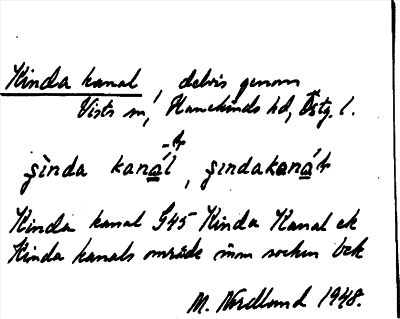 Kinda kanal, delvis genom
Vists sn, Hanekinds hd, Östg. l.
-ɫ
şìnda kanál, şındakanáɫ
Kinda kanal G45 Kinda Kanal ek
Kinda kanals område inom socken bek
M. Nordlund 1948.